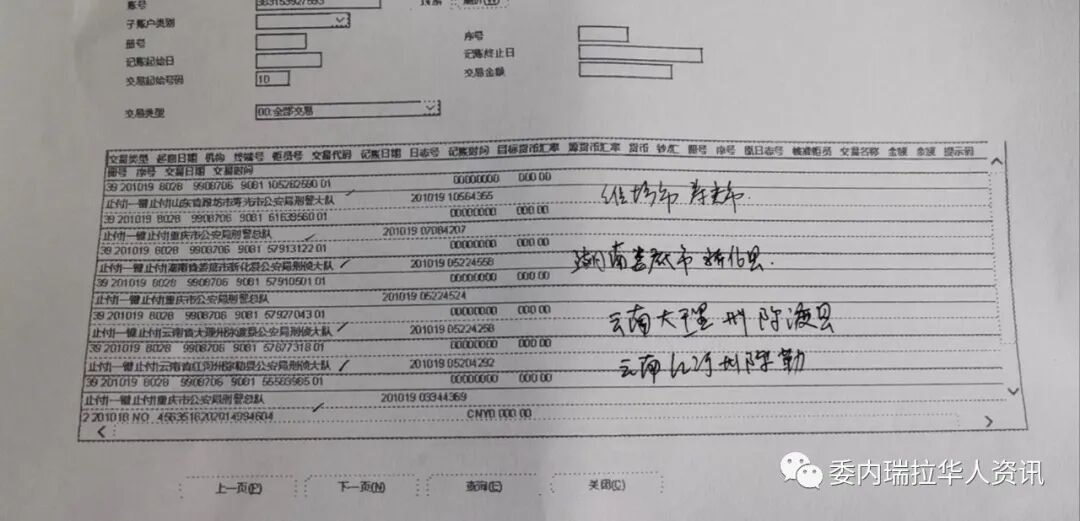 账号
子账户类别
册号 序号
记账起始日 记账终止日
交易起始号码 10 交易金额
交易类型 00:全部交易
交易类型 起息日期 机构 终端号 柜员号 交易代码 记账日期 日志号 记账时间 目标货币汇率 源货币汇率 货币 钞汇 册号 序号 日志号 核准柜员 交易名称 金额 余额 提示码
册号 序号 交易日期 交易时间
39 201019 8028 9908706 9081 105282590 01 00000000 000 00
止付|一键止付|山东省潍坊市寿光市公安局刑警大队 201019 10564355
39 201019 8028 9908706 9081 61639560 01 00000000 000 00
止付|一键止付|重庆市公安局刑警总队 201019 07084207
39 201019 8028 9908706 9081 57913122 01 00000000 000 00
止付|一键止付|湖南省娄底市新化县公安局刑侦大队 201019 05224558
39 201019 8028 9908706 9081 57910501 01 00000000 000 00
止付|一键止付|重庆市公安局刑警总队 201019 05224524
39 201019 8028 9908706 9081 57927043 01 00000000 000 00
止付|一键止付|云南省大理州弥渡县公安局刑侦大队 201019 05224258
39 201019 8028 9908706 9081 57877318 01 00000000 000 00
止付|一键止付|云南省红河州弥勒县公安局刑侦大队 201019 05204292
39 201019 8028 9908706 9081 55583985 01 00000000 000 00
止付|一键止付|重庆市公安局刑警总队 201019 03344369
2 201018 NO CNY0 000 00
湖南娄底市 新化县
云南大理 州 渡县
云南红河州 勒
上一页(P) 下一页(N) 查询(E) 关闭(C)
委内瑞拉华人资讯